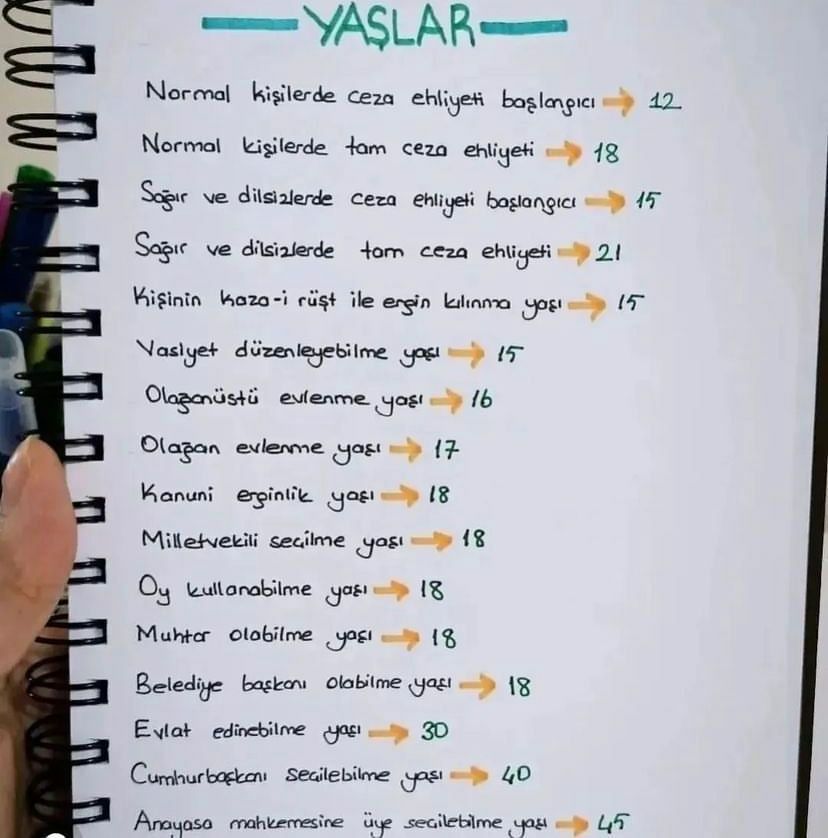 YAŞLAR
Normal kişilerde ceza ehliyeti başlangıcı → 12
Normal kişilerde tam ceza ehliyeti → 18
Sağır ve dilsizlerde ceza ehliyeti başlangıcı → 15
Sağır ve dilsizlerde tam ceza ehliyeti → 21
Kişinin kaza-i rüşt ile ergin kılınma yaşı → 15
Vasiyet düzenleyebilme yaşı → 15
Olağanüstü evlenme yaşı → 16
Olağan evlenme yaşı → 17
Kanuni erginlik yaşı → 18
Milletvekili seçilme yaşı → 18
Oy kullanabilme yaşı → 18
Muhtar olabilme yaşı → 18
Belediye başkanı olabilme yaşı → 18
Evlat edinebilme yaşı → 30
Cumhurbaşkanı seçilebilme yaşı → 40
Anayasa mahkemesine üye seçilebilme yaşı → 45